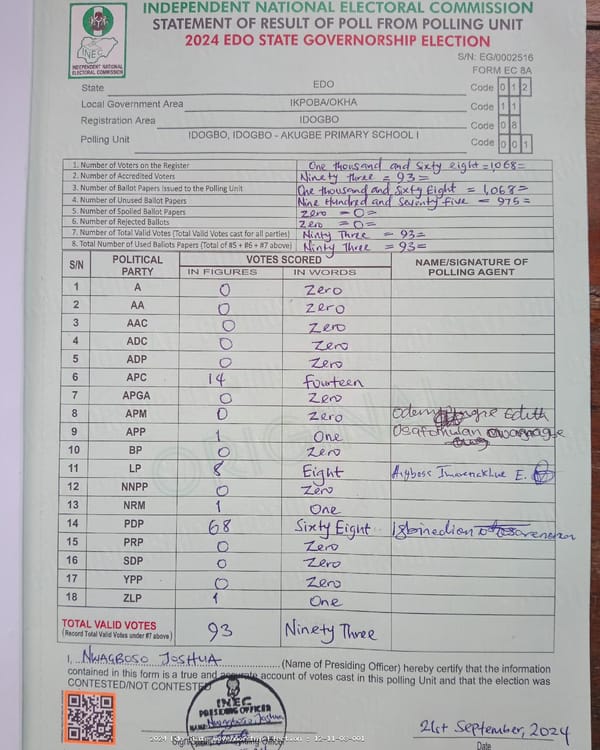 INDEPENDENT NATIONAL ELECTORAL COMMISSION
STATEMENT OF RESULT OF POLL FROM POLLING UNIT
2024 EDO STATE GOVERNORSHIP ELECTION
INEC
INDEPENDENT NATIONAL
ELECTORAL COMMISSION
S/N: EG/0002516
FORM EC 8A
State EDO Code 0 1 2
Local Government Area IKPOBA/OKHA Code 1 1
Registration Area IDOGBO Code 0 8
Polling Unit IDOGBO, IDOGBO - AKUGBE PRIMARY SCHOOL I Code 0 0 1
1. Number of Voters on the Register One thousand and sixty eight =1,068=
2. Number of Accredited Voters Ninety three = 93=
3. Number of Ballot Papers Issued to the Polling Unit One thousand and sixty Eight = 1,068=
4. Number of Unused Ballot Papers Nine Hundred and Seventy five = 975=
5. Number of Spoiled Ballot Papers Zero =0=
6. Number of Rejected Ballots Zero =0=
7. Number of Total Valid Votes (Total Valid Votes cast for all parties) Ninty Three = 93=
8. Total Number of Used Ballots Papers (Total of #5 + #6 + #7 above) Ninty Three = 93=
S/N POLITICAL PARTY VOTES SCORED NAME/SIGNATURE OF POLLING AGENT
IN FIGURES IN WORDS
1 A 0 Zero
2 AA 0 Zero
3 AAC 0 Zero
4 ADC 0 Zero
5 ADP 0 Zero
6 APC 14 Fourteen
7 APGA 0 Zero
8 APM 0 Zero Edith
9 APP 1 One
10 BP 0 Zero
11 LP 8 Eight E.
12 NNPP 0 Zero
13 NRM 1 One
14 PDP 68 Sixty Eight Igbinedion
15 PRP 0 Zero
16 SDP 0 Zero
17 YPP 0 Zero
18 ZLP 1 One
TOTAL VALID VOTES 93 Ninety Three
(Record Total Valid Votes under #7 above)
I, NWAGBOSO JOSHUA (Name of Presiding Officer) hereby certify that the information
contained in this form is a true and accurate account of votes cast in this polling Unit and that the election was
CONTESTED/NOT CONTESTED
INEC
PRESIDING OFFICER
Nwagboso Joshua
21st September, 2024
Date